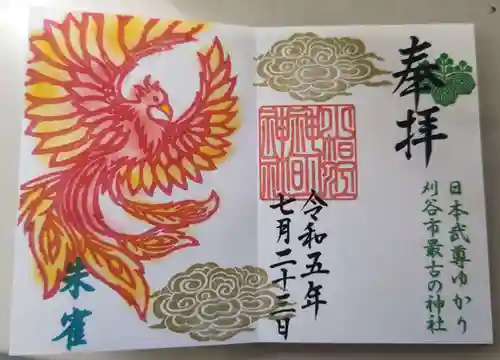 奉拝
日本武尊ゆかり
刈谷市最古の神社
令和五年
七月二十三日
朱雀